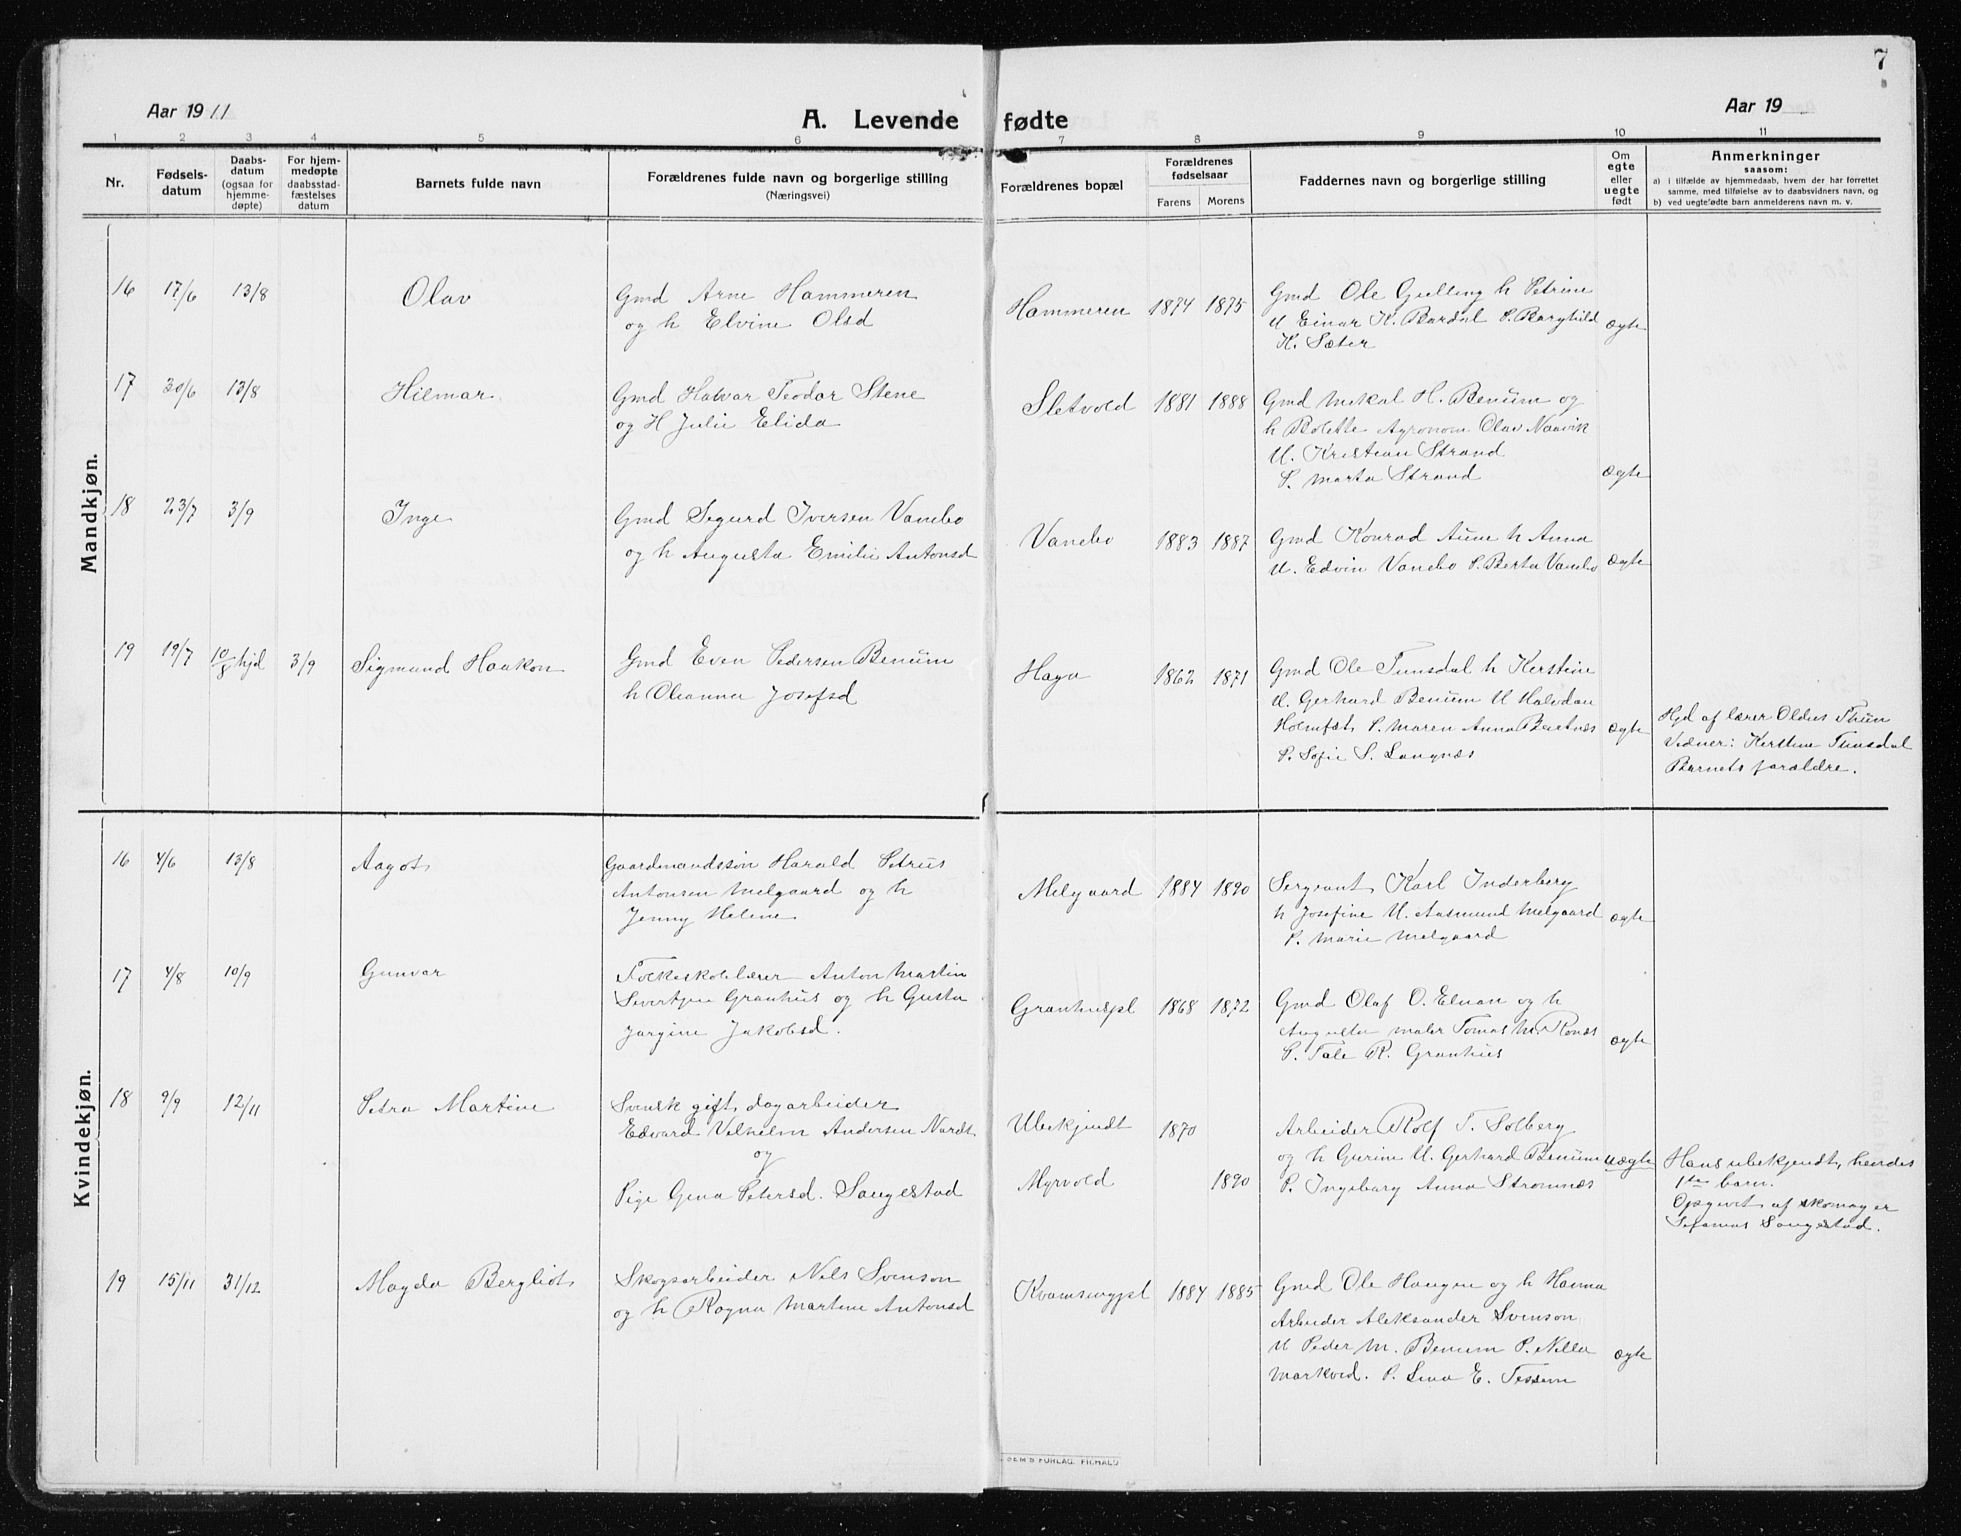 7
Aar 1911
A. Levende fødte
Aar 19
1 2 3 4 5 6 7 8 9 10 11
Nr.
Fødsels-
datum
Daabs-
datum
(ogsaa for
hjemme-
døpte)
For hjem-
medøpte
daabsstad-
fæstelses
datum
Barnets fulde navn
Forældrenes fulde navn og borgerlige stilling
(Næringsvei)
Forældrenes bopæl
Forældrenes
fødselsaar
Farens Morens
Faddernes navn og borgerlige stilling
Om
egte
eller
uegte
født
Anmerkninger
saasom:
a) i tilfælde av hjemmedaab, hvem der har forrettet
samme, med tilføielse av to daabsvidners navn, og
b) ved uegtefødte barn anmelderens navn m. v.
Mandkjøn.
16 17/6 13/8 Olav
Gmd Arne Hammeren
og h Elvine Olsd
Hammeren 1874 1875
Gmd Ole Gulling h Petrine
U Einar K. Bardal P. Borghild
K. Sæter
ægte
17 30/6 13/8 Hilmar
Gmd Halvar Teodor Stene
og H Julie Elida
Sletvold 1881 1888
Gmd Mikal H. Benum og
h Bolette Agronom Olav Naavik
U. Kristian Strand
P. Marta Strand
ægte
18 23/7 3/9 Inge
Gmd Sigurd Iversen Vanebo
og h Augusta Emilie Antonsd
Vanebo 1883 1887
Gmd Konrad Aune h Anna
U. Edvin Vanebo P. Berta Vanebo
ægte
19 19/7 10/8 hjd 3/9 Sigmund Haakon
Gmd Even Pedersen Benum
h Oleanna Josefsd
Haga 1862 1871
Gmd Ole Tunsdal h Kerstine
U. Gerhard Benum U Halvdan
Holmfæt P. Maren Anna Bartnæs
P. Sofie S. Langnæs
ægte
Hjd af lærer Oldus Thun
Vidner: Kerstine Tunsdal
Barnets forældre.
Kvindekjøn.
16 4/6 13/8 Aagot
Gaardmandssøn Harald Petrus
Antonsen Melgaard og h
Jenny Helene
Melgaard 1884 1890
Sergeant Karl Inderberg
h Josefine U. Aasmund Melgaard
P. Marie Melgaard
ægte
17 4/8 10/9 Gunvor
Folkeskolelærer Anton Martin
Sivertsen Granhus og h Gusta
Jørgine Jakobsd.
Granhuspl 1868 1872
Gmd Olaf O. Elnan og h
Augusta maler Tomas M. Ronæs
P. Tale R. Granhus
ægte
18 9/9 12/11 Petra Martine
Svensk gift dagarbeider
Edvard Vilhelm Andersen Nordt
og
Pige Gina Petersd. Saugestad
Ubekjendt 1870
Myrvold 1890
Arbeider Rolf T. Solberg
og h Gurine U. Gerhard Benum
P. Ingeborg Anna Strømnæs
uægte
Hans ubekjendt, hendes
1ste barn.
Opgivet af skomager
Sefanias Saugestad.
19 15/11 31/12 Magda Bergliot
Skogsarbeider Nils Svenson
og h Ragna Martine Antonsd
Kvamsengpl 1884 1885
Gmd Ole Haugen og h Hanna
Arbeider Aleksander Svenson
U Peder M. Benum P. Nella
Markved. P. Lina E. Tessem
ægte
SEM'S FORLAG, FR.HALD